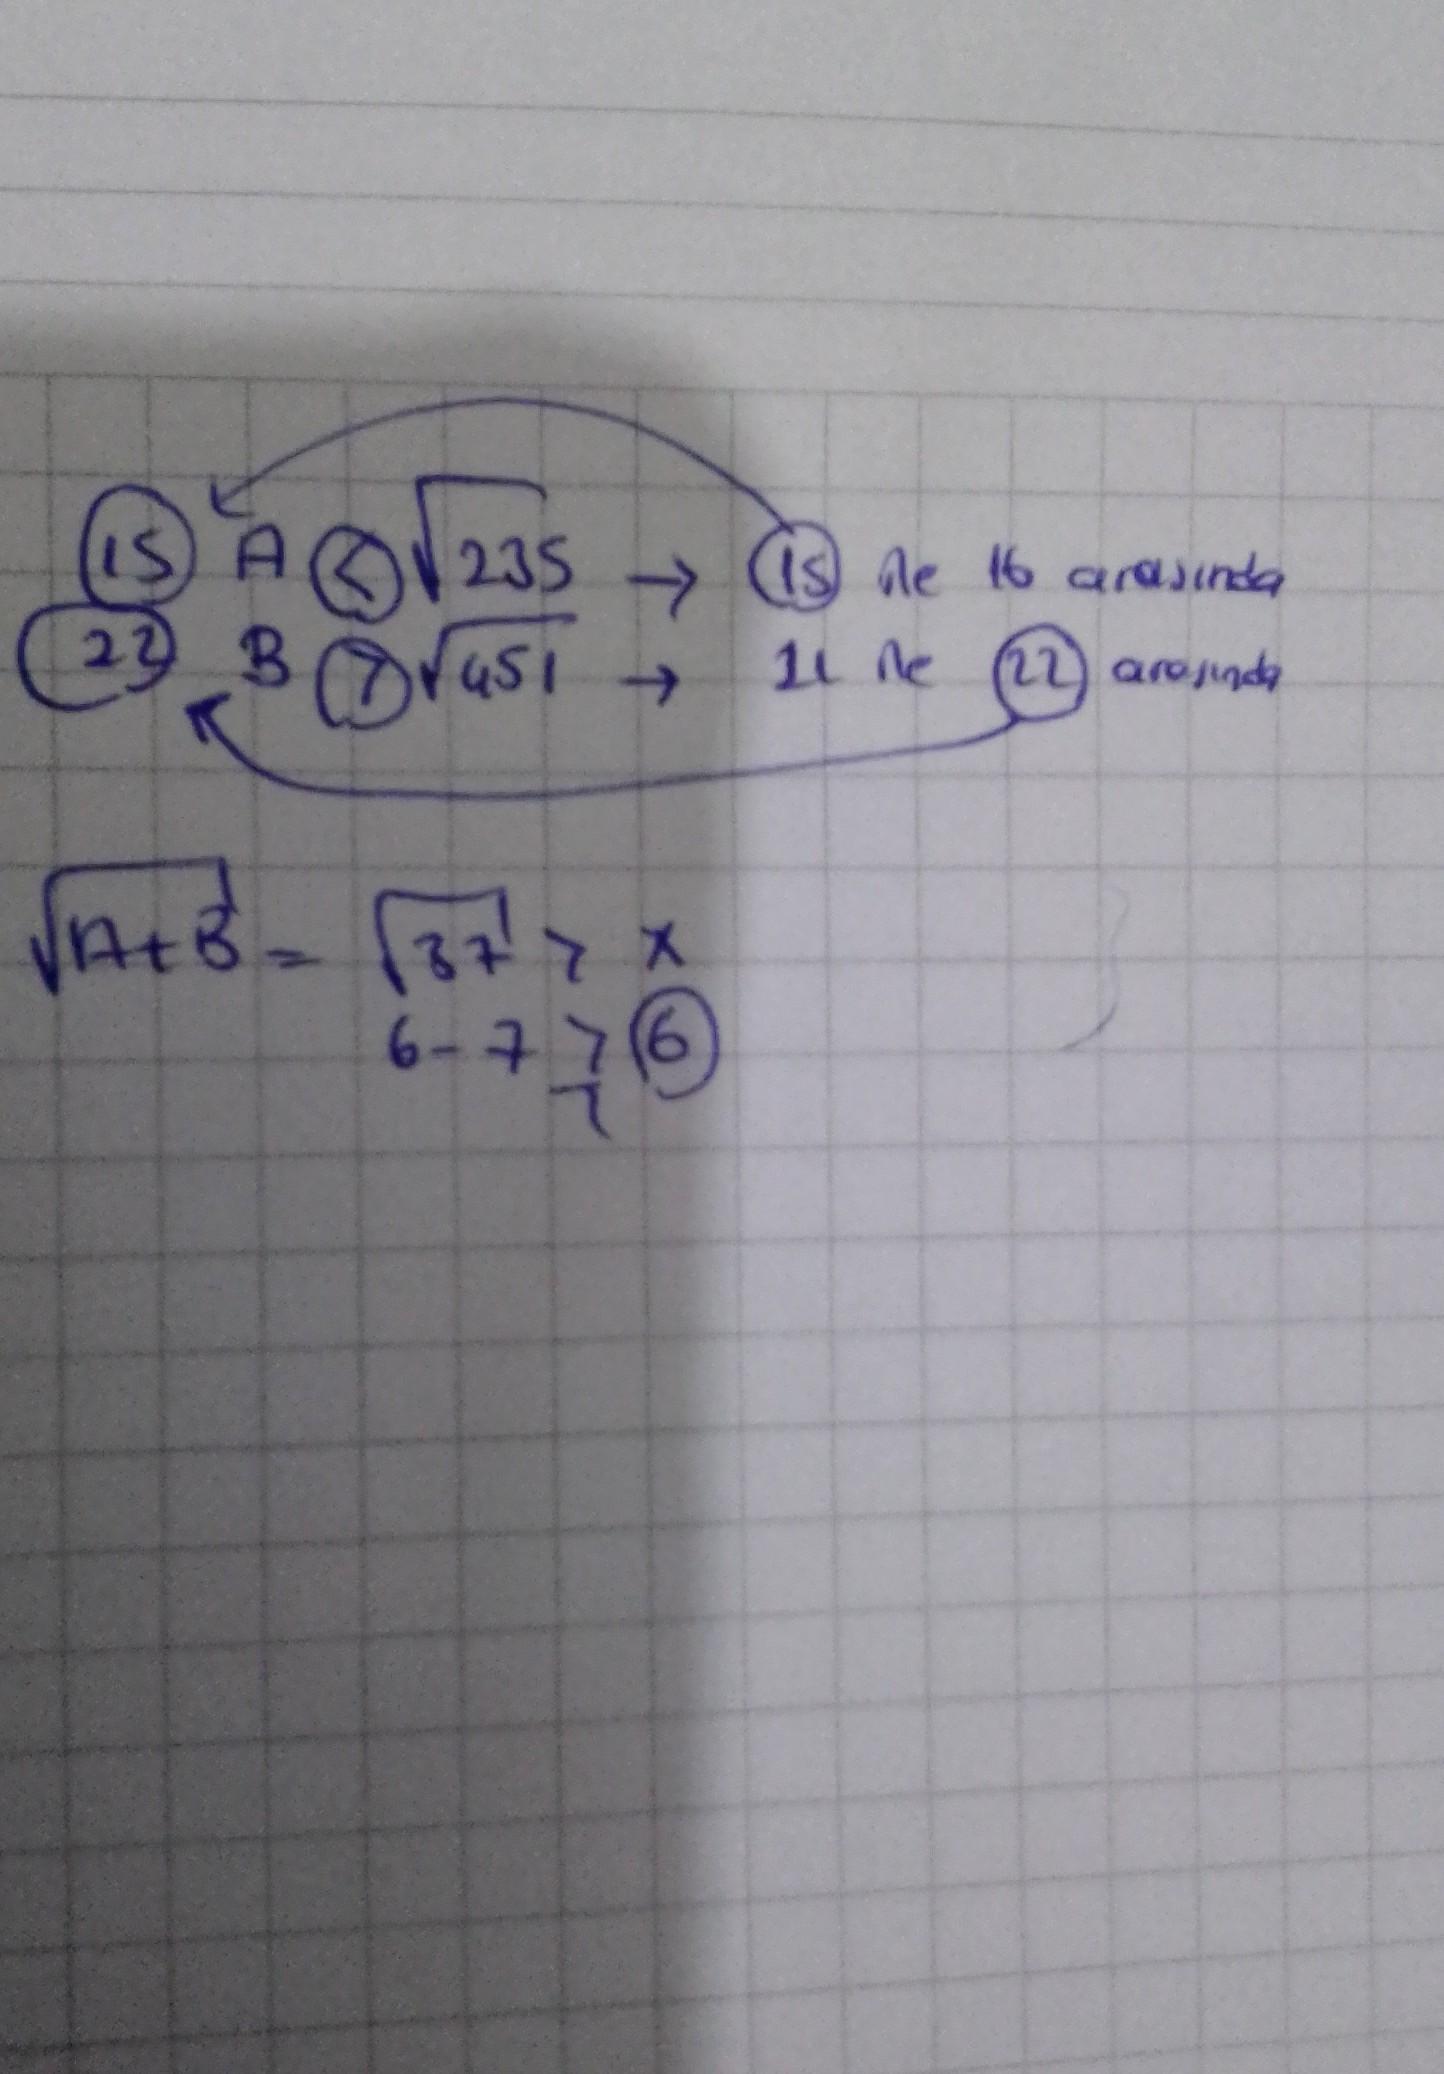 15 A < √235 → 15 ile 16 arasında
22 B > √451 → 21 ile 22 arasında
√A+B = √37 > x
6-7 > 6